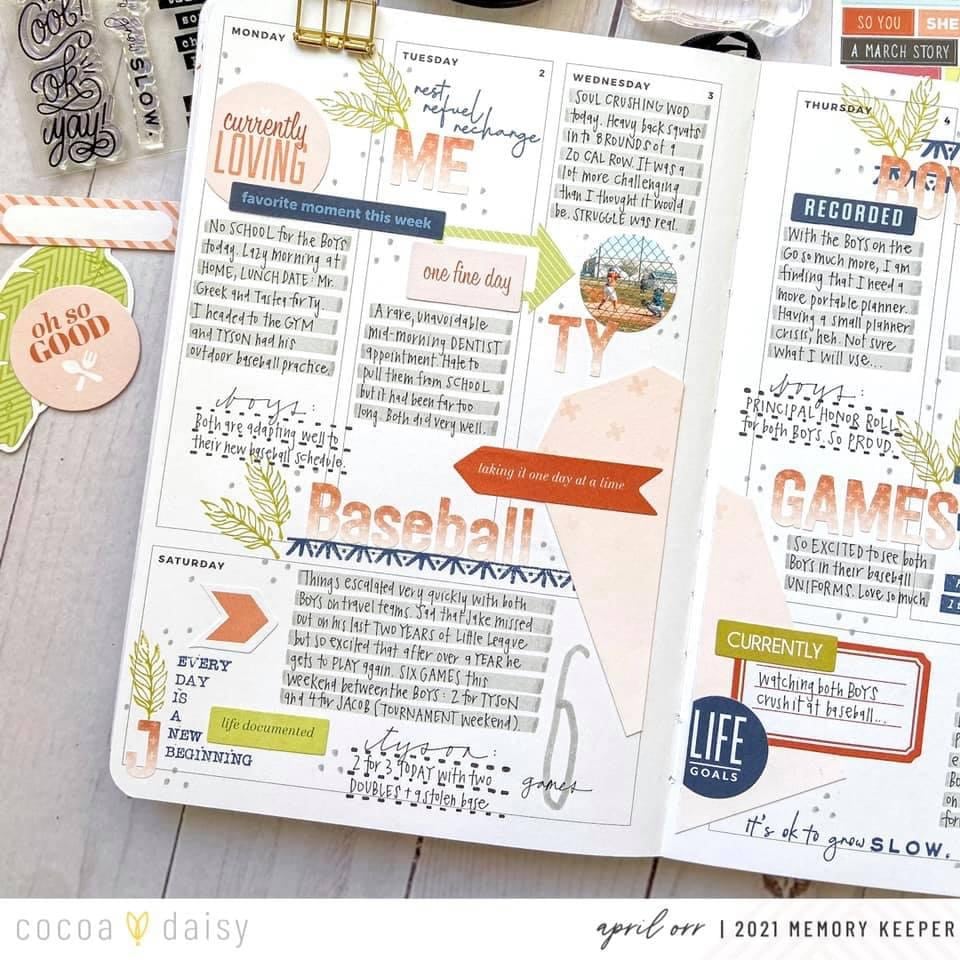 Cool!
ok
yay!
SLOW.
SO YOU
SHE
A MARCH STORY
MONDAY
currently
LOVING
favorite moment this week
No SCHOOL for the BOYS
today. Lazy morning at
HOME, LUNCH DATE: Mr.
Greek and Tastea for Ty.
I headed to the GYM
and TYSON had his
outdoor baseball practice.
boys:
Both are adapting well to
their new baseball schedule.
TUESDAY
2
rest
refuel
recharge
ME
one fine day
A rare, unavoidable
mid-morning DENTIST
appointment. Hate to
pull them from SCHOOL
but it had been far too
long. Both did very well.
WEDNESDAY
3
SOUL CRUSHING WOD
today. Heavy back squats
in to 8 ROUNDS of 9
20 CAL ROW. It was a
lot more challenging
than I thought it would
be. STRUGGLE was real.
TY
taking it one day at a time
Baseball
THURSDAY
4
BOY
RECORDED
With the BOYS on the
Go so much more, I am
finding that I need a
more portable planner.
Having a small planner
crisis, heh. Not sure
what I will use...
boys:
PRINCIPAL HONOR ROLL
for both BOYS. SO PROUD.
GAMES
So EXCITED to see both
BOYS in their baseball
UNIFORMS. Love so much
oh so
GOOD
SATURDAY
EVERY
DAY
IS
A
NEW
BEGINNING
J
life documented
Things escalated very quickly with both
BOYS on travel teams. Sad that Jake missed
out on his last TWO YEARS of Little League
but so excited that after over a YEAR he
gets to PLAY again. SIX GAMES this
weekend between the BOYS: 2 for TYSON
and 4 for JACOB (TOURNAMENT weekend).
tyson:
2 for 3 TODAY with two
DOUBLES + a stolen base
6
games
CURRENTLY
Watching both BOYS
crush it at baseball...
LIFE
GOALS
it's ok to grow SLOW.
cocoa daisy
april orr | 2021 MEMORY KEEPER